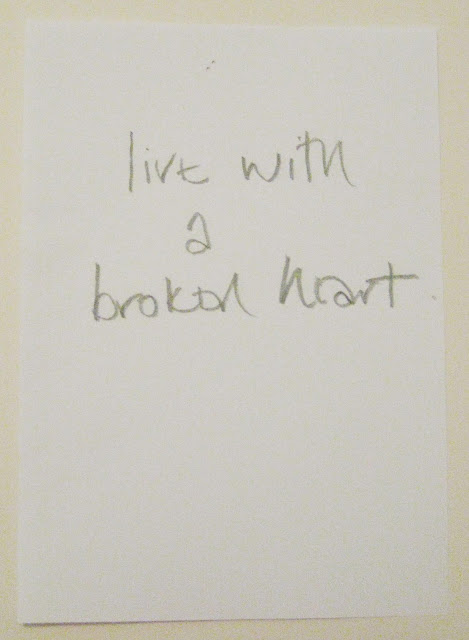 live with
a
broken heart.